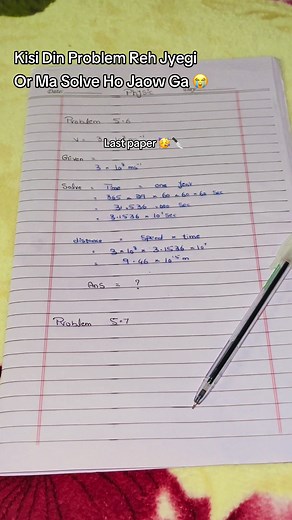 Kisi Din Problem Reh Jyegi
Or Ma Solve Ho Jaow Ga 😭
Date:
Physics
Problem 5.6
V = 3
Last paper
Given =
3 × 10⁸ ms⁻¹
Solve = Time = one year
= 365 × 24 × 60 × 60 × 60 Sec
= 31.536 × 100 Sec
= 3.1536 × 10⁷ Sec
distance = Speed × time
= 3 × 10⁸ × 3.1536 × 10⁷
= 9.46 × 10¹⁵ m
Ans = ?
Problem 5.7